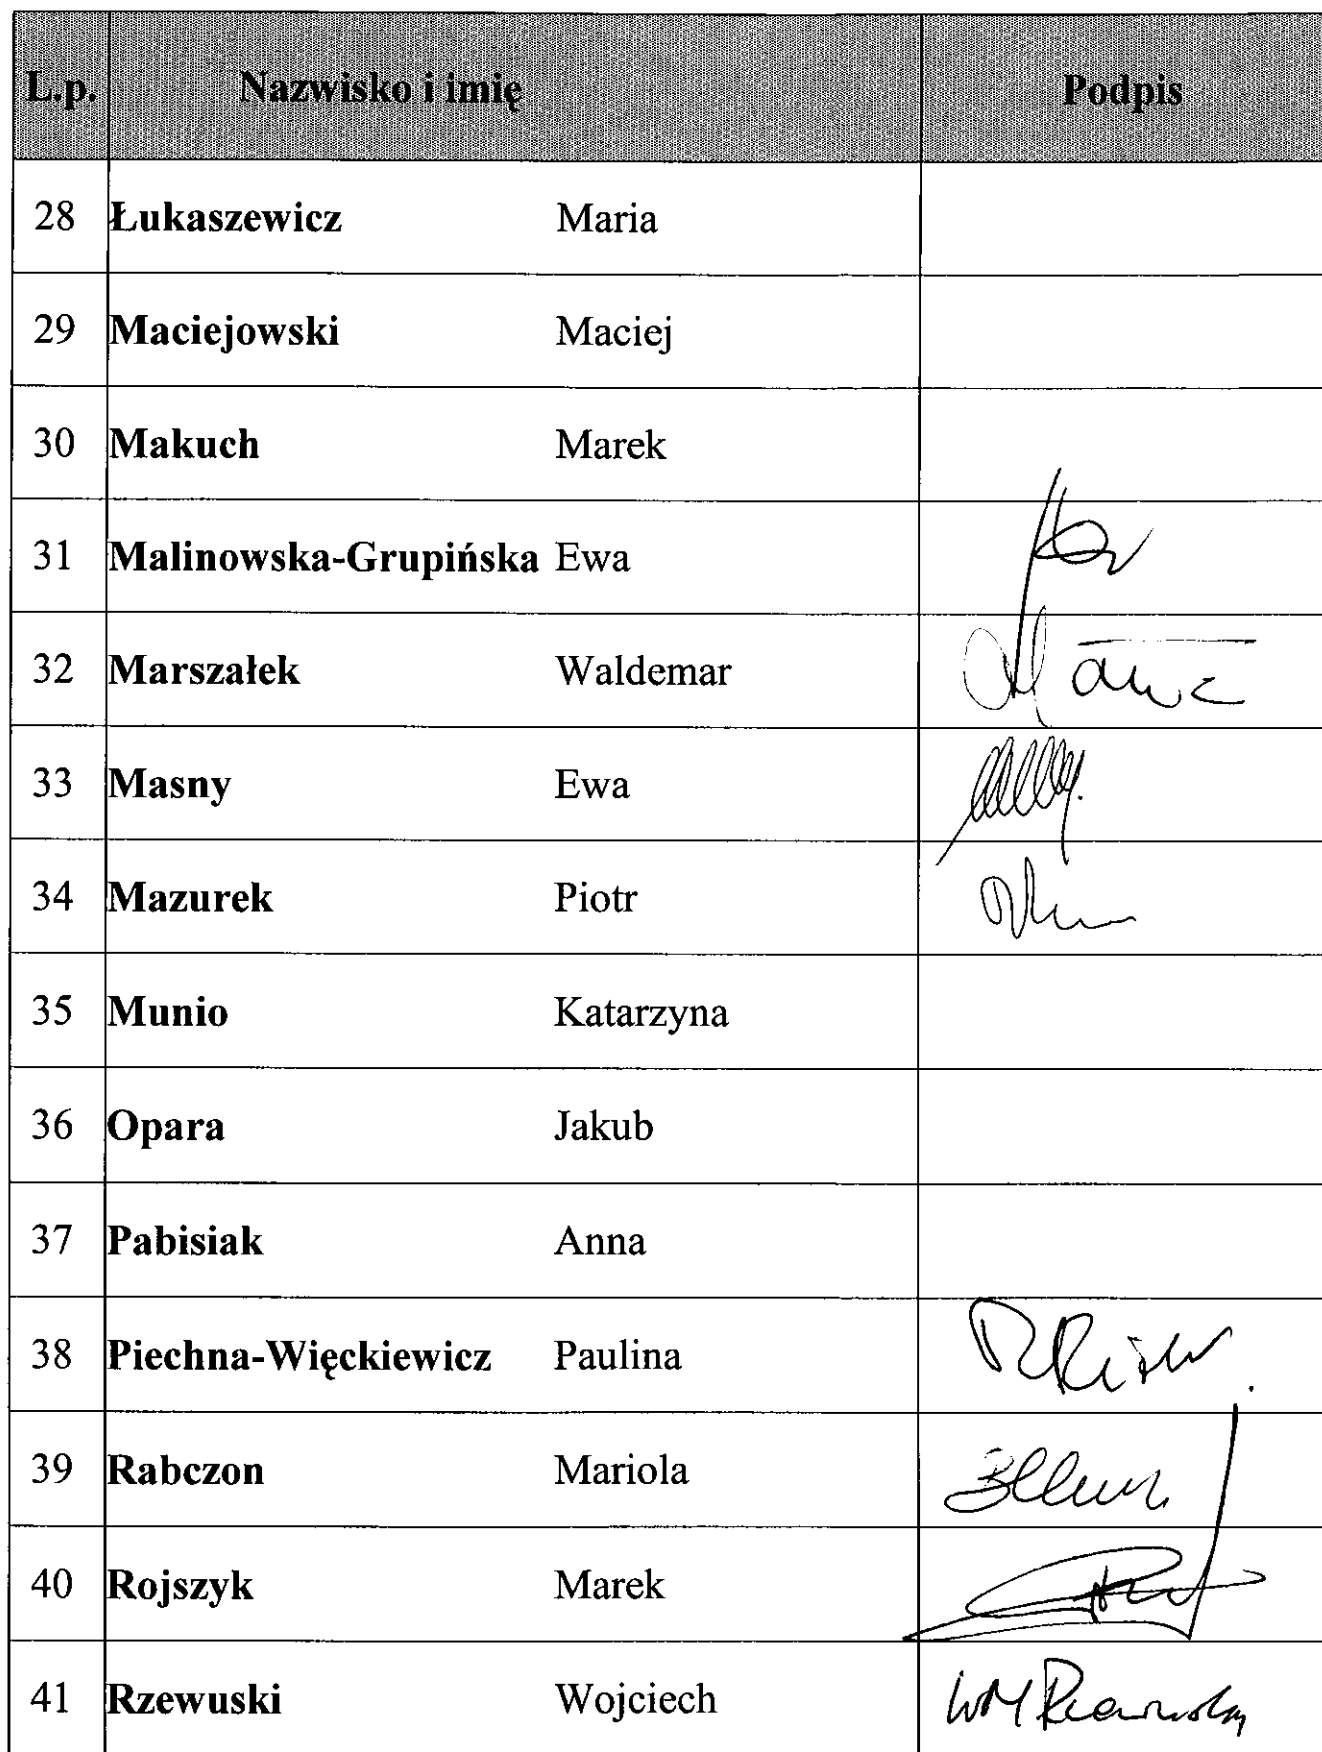 L.p. Nazwisko i imię Podpis
28 Łukaszewicz Maria
29 Maciejowski Maciej
30 Makuch Marek
31 Malinowska-Grupińska Ewa
32 Marszałek Waldemar
33 Masny Ewa
34 Mazurek Piotr
35 Munio Katarzyna
36 Opara Jakub
37 Pabisiak Anna
38 Piechna-Więckiewicz Paulina
39 Rabczon Mariola
40 Rojszyk Marek
41 Rzewuski Wojciech